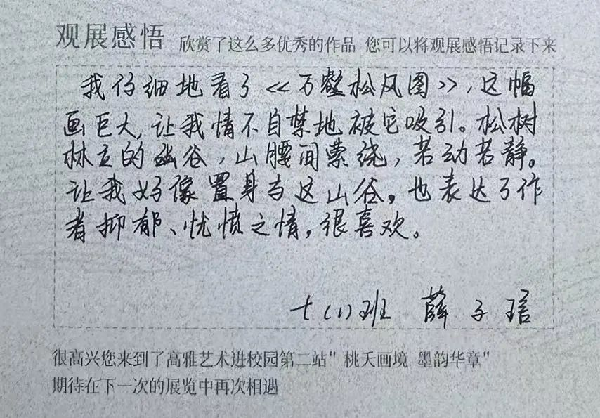 观展感悟 欣赏了这么多优秀的作品 您可以将观展感悟记录下来
我仔细地看了《万壑松风图》，这幅
画巨大，让我情不自禁地被它吸引。松树
林立的幽谷，山腰间萦绕，若动若静。
让我好像置身与这山谷。也表达了作
者抑郁、忧愤之情，很喜欢。
七(1)班 薛子
很高兴您来到了高雅艺术进校园第二站"桃夭画境 墨韵华章"
期待在下一次的展览中再次相遇